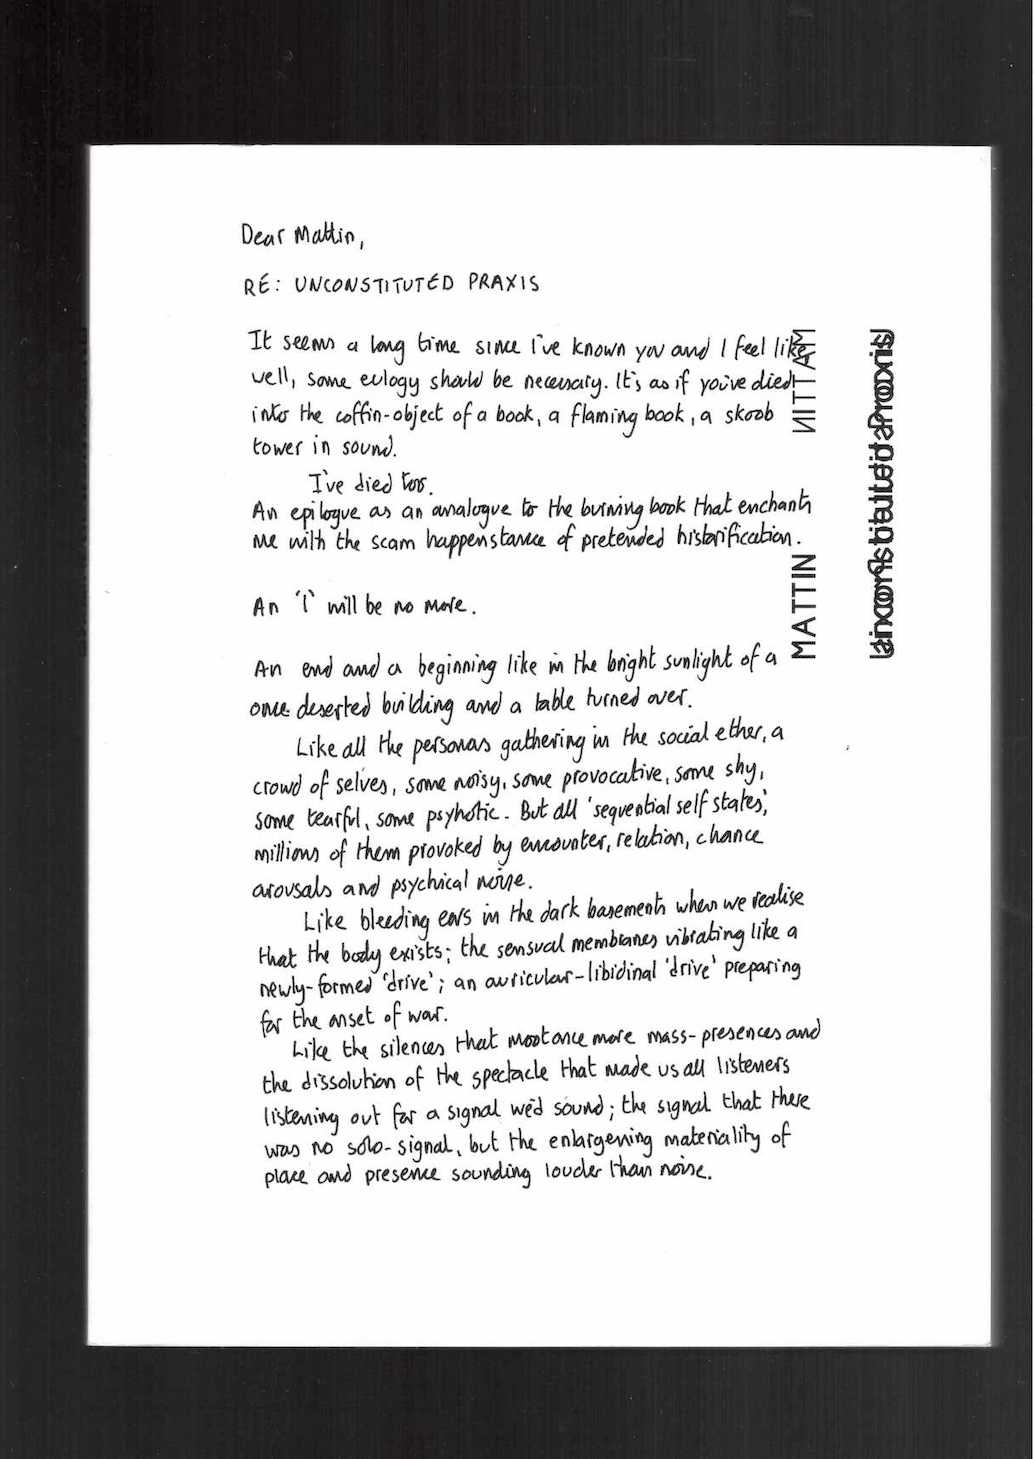 Dear Mattin,
RE: UNCONSTITUTED PRAXIS
It seems a long time since I've known you and I feel like,
well, some eulogy should be necessary. It's as if you've died
into the coffin-object of a book, a flaming book, a skoob
tower in sound.
I've died too.
An epilogue as an analogue to the burning book that enchants
me with the scam happenstance of pretended historification.
An 'I' will be no more.
An end and a beginning like in the bright sunlight of a
once deserted building and a table turned over.
Like all the personas gathering in the social ether, a
crowd of selves, some noisy, some provocative, some shy,
some tearful, some psyhotic. But all 'sequential self states',
millions of them provoked by encounter, relation, chance
arousals and psychical noise.
Like bleeding ears in the dark basements when we realise
that the body exists; the sensual membranes vibrating like a
newly-formed 'drive'; an auricular-libidinal 'drive' preparing
for the onset of war.
Like the silences that moot once more mass-presences and
the dissolution of the spectacle that made us all listeners
listening out for a signal we'd sound; the signal that there
was no solo-signal, but the enlargening materiality of
place and presence sounding louder than noise.
MATTIN MATTIN